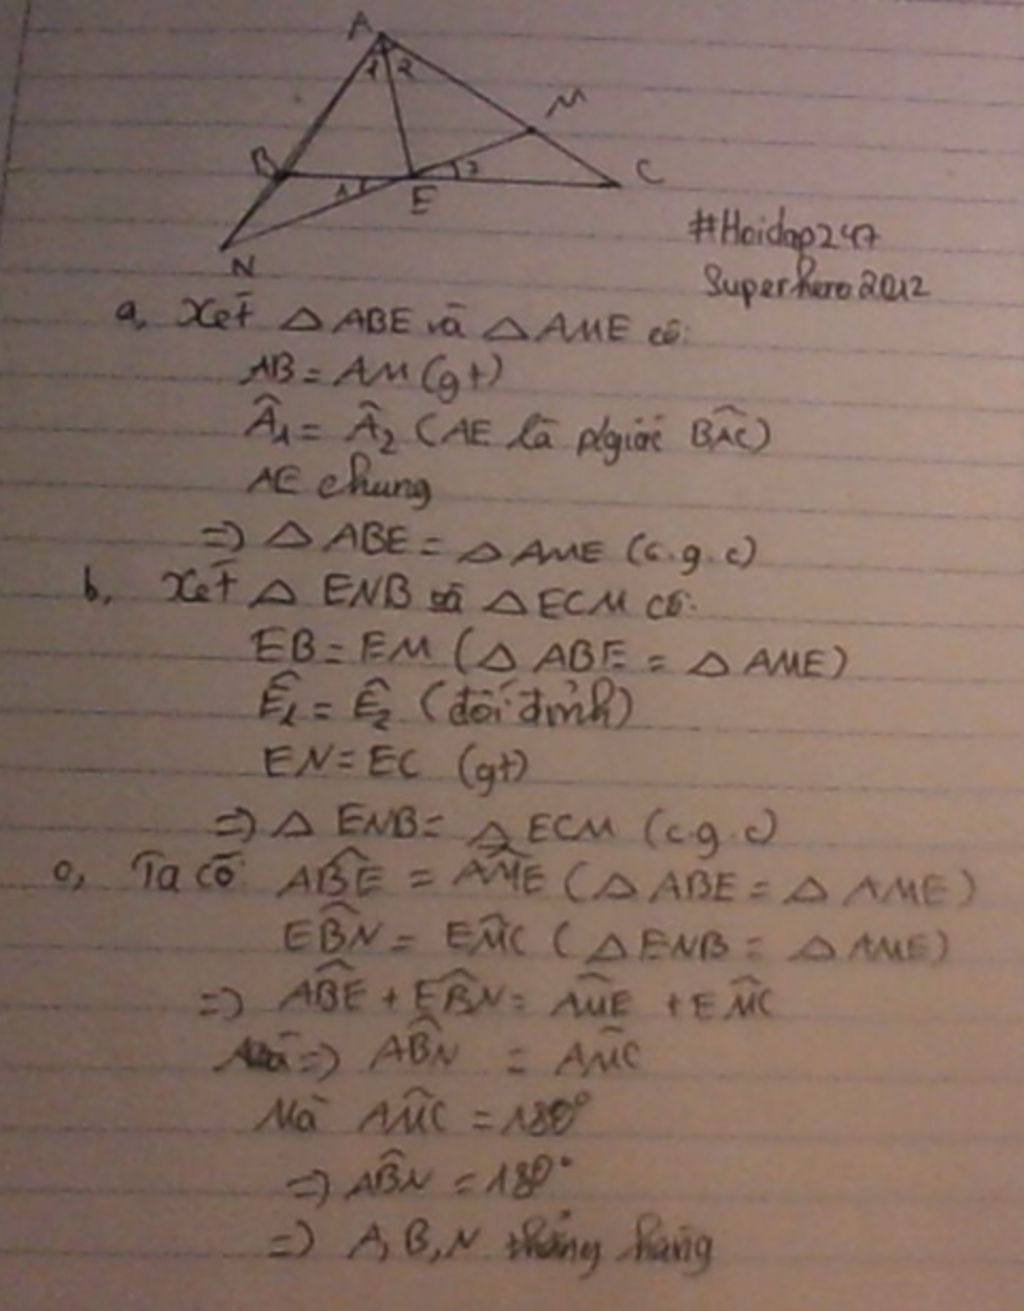 A
1 2
M
B
C
1
2
E
N
#Hoidap247
Superhero2012
a, Xét △ ABE và △ AME có:
AB = AM (gt)
Â₁ = Â₂ (AE là p/giác BÂC)
AE chung
=> △ ABE = △ AME (c.g.c)
b, Xét △ ENB và △ ECM có:
EB = EM (△ ABE = △ AME)
Ê₁ = Ê₂ (đối đỉnh)
EN = EC (gt)
=> △ ENB = △ ECM (c.g.c)
c, Ta có: AB̂E = AM̂E (△ ABE = △ AME)
EB̂N = EM̂C (△ ENB = △ AME)
=> AB̂E + EB̂N = AM̂E + EM̂C
=> AB̂N = AM̂C
Mà AM̂C = 180°
=> AB̂N = 180°
=> A, B, N thẳng hàng